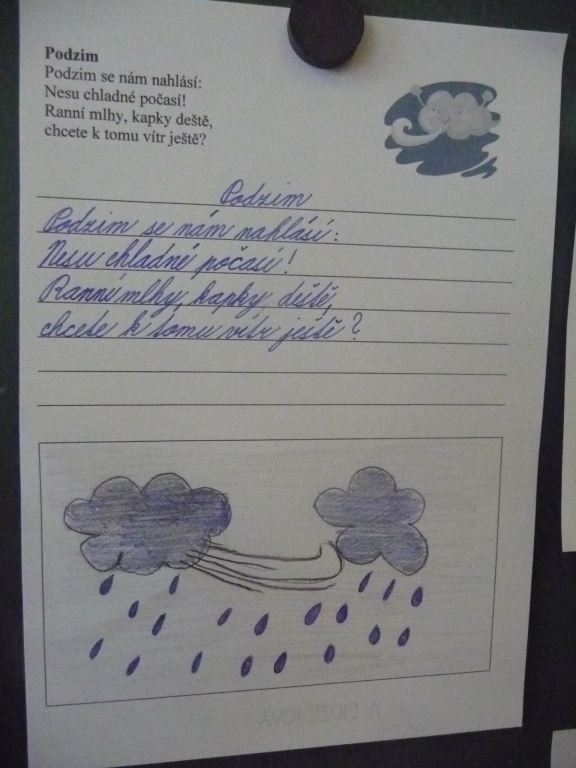 Podzim
Podzim se nám nahlásí:
Nesu chladné počasí!
Ranní mlhy, kapky deště,
chcete k tomu vítr ještě?
Podzim
Podzim se nám nahlásí:
Nesu chladné počasí!
Ranní mlhy, kapky deště,
chcete k tomu vítr ještě?